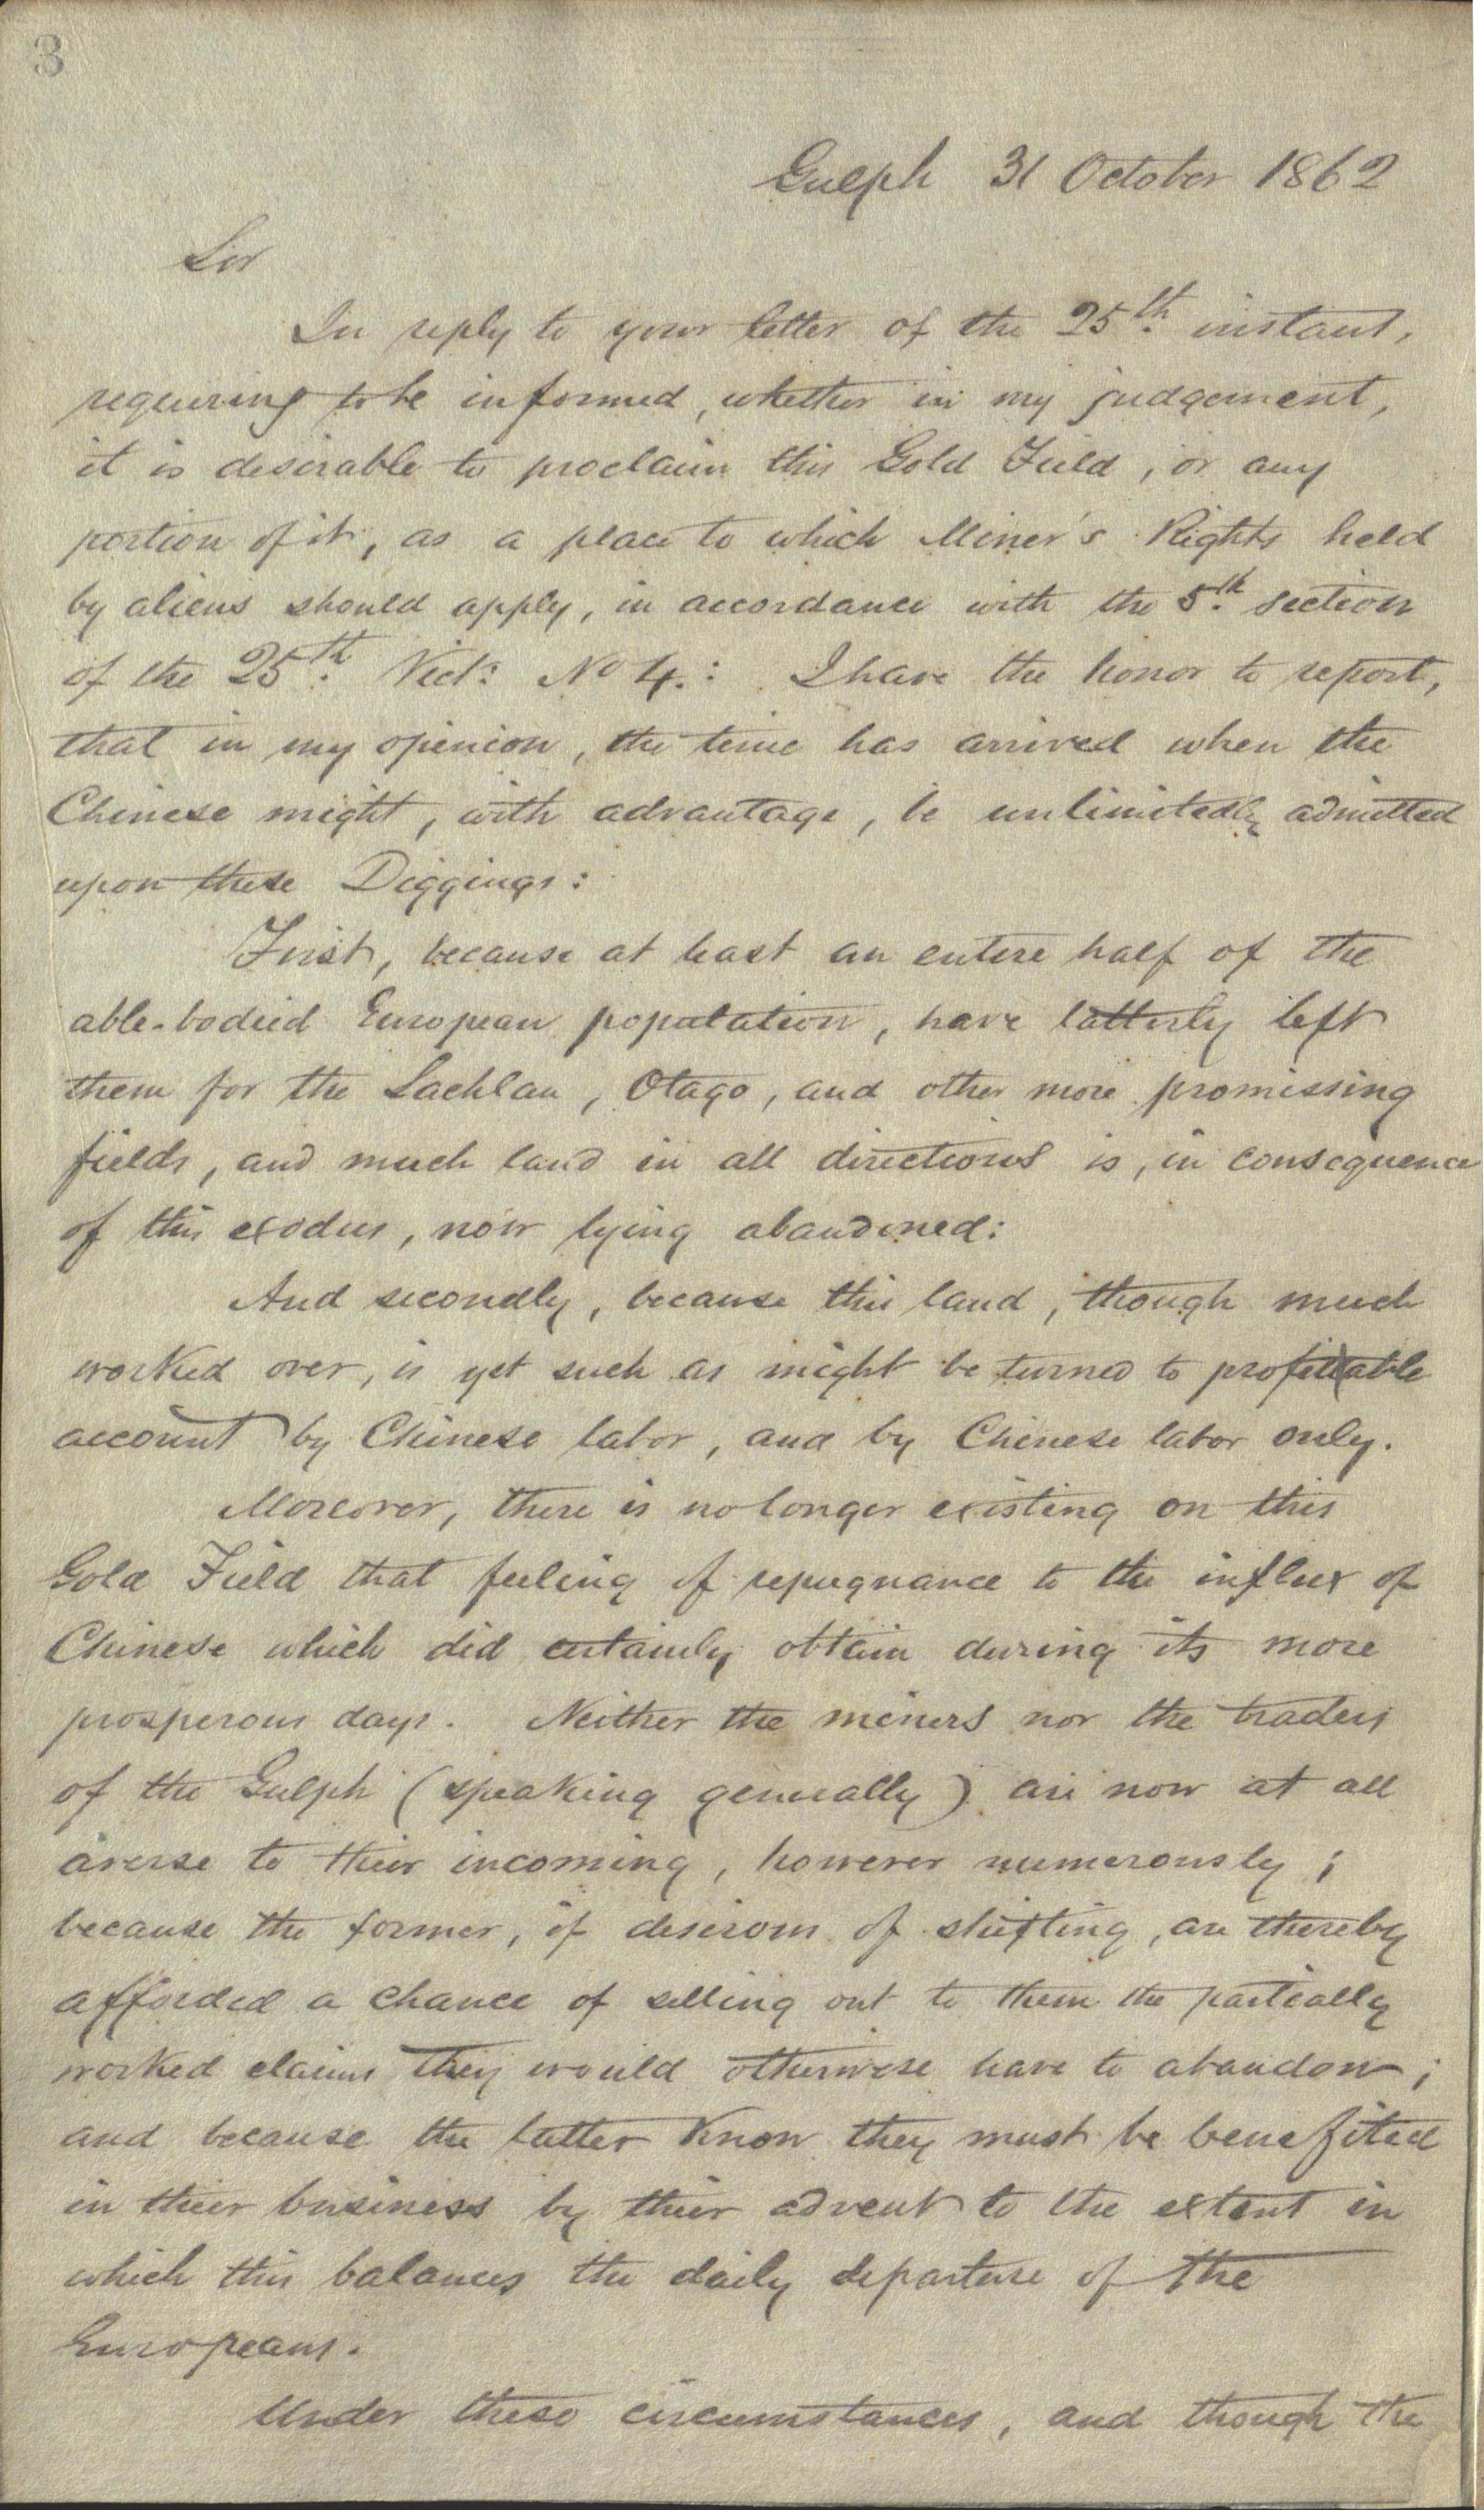 3
Gulph 31 October 1862
Sir
In reply to your letter of the 25th. instant,
requiring to be informed, whether in my judgement,
it is desirable to proclaim this Gold Field, or any
portion of it, as a place to which Miner's Rights held
by aliens should apply, in accordance with the 5th. section
of the 25th. Vict: No 4.: I have the honor to report,
that in my opinion, the time has arrived when the
Chinese might, with advantage, be unlimitedly admitted
upon these Diggings:
First, because at least an entire half of the
able-bodied European population, have latterly left
them for the Lachlan, Otago, and other more promissing
fields, and much land in all directions is, in consequence
of this exodus, now lying abandoned:
And secondly, because this land, though much
worked over, is yet such as might be turned to profitable
account by Chinese labor, and by Chinese labor only.
Moreover, there is no longer existing on this
Gold Field that feeling of repugnance to the influx of
Chinese which did certainly obtain during its more
prosperous days. Neither the miners nor the traders
of the Gulph (speaking generally) are now at all
averse to their incoming, however numerously;
because the former, if desirous of shifting, are thereby
afforded a chance of selling out to them the partially
worked claims they would otherwise have to abandon;
and because the latter know they must be benefited
in their business by their advent to the extent in
which this balances the daily departure of the
Europeans.
Under these circumstances, and though the